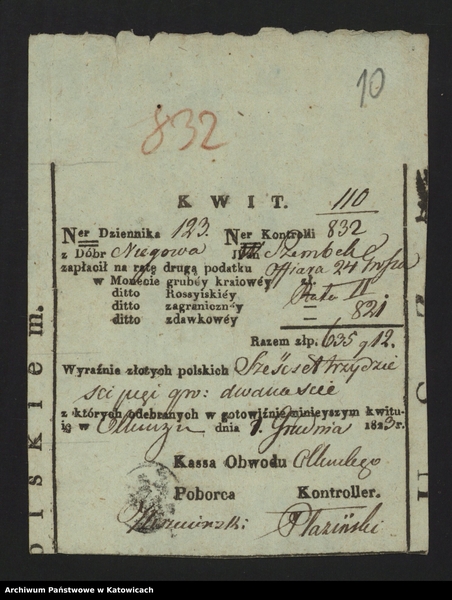 10
832
KWIT. 110
Ner Dziennika 123. Ner Kontrolli 832
z Dóbr Niegowa JW Szembek
zapłacił na ratę drugą podatku Offiara 24 Grosza
w Monecie grubéy kraiowéy Rata II.
ditto Rossyiskiéy
ditto zagraniczney
ditto zdawkowéy 821
Razem złp. 635 g 12.
Wyraźnie złotych polskich Sześćset trzydzie
sci pięć gr: dwanaście
z których odebranych w gotowiźnie ninieyszym kwitu-
ię w Olkuszu dnia 1. Grudnia 1823 r.
Kassa Obwodu Olkuskiego
Poborca Kontroller.
Płaziński
olskiem.
Archiwum Państwowe w Katowicach